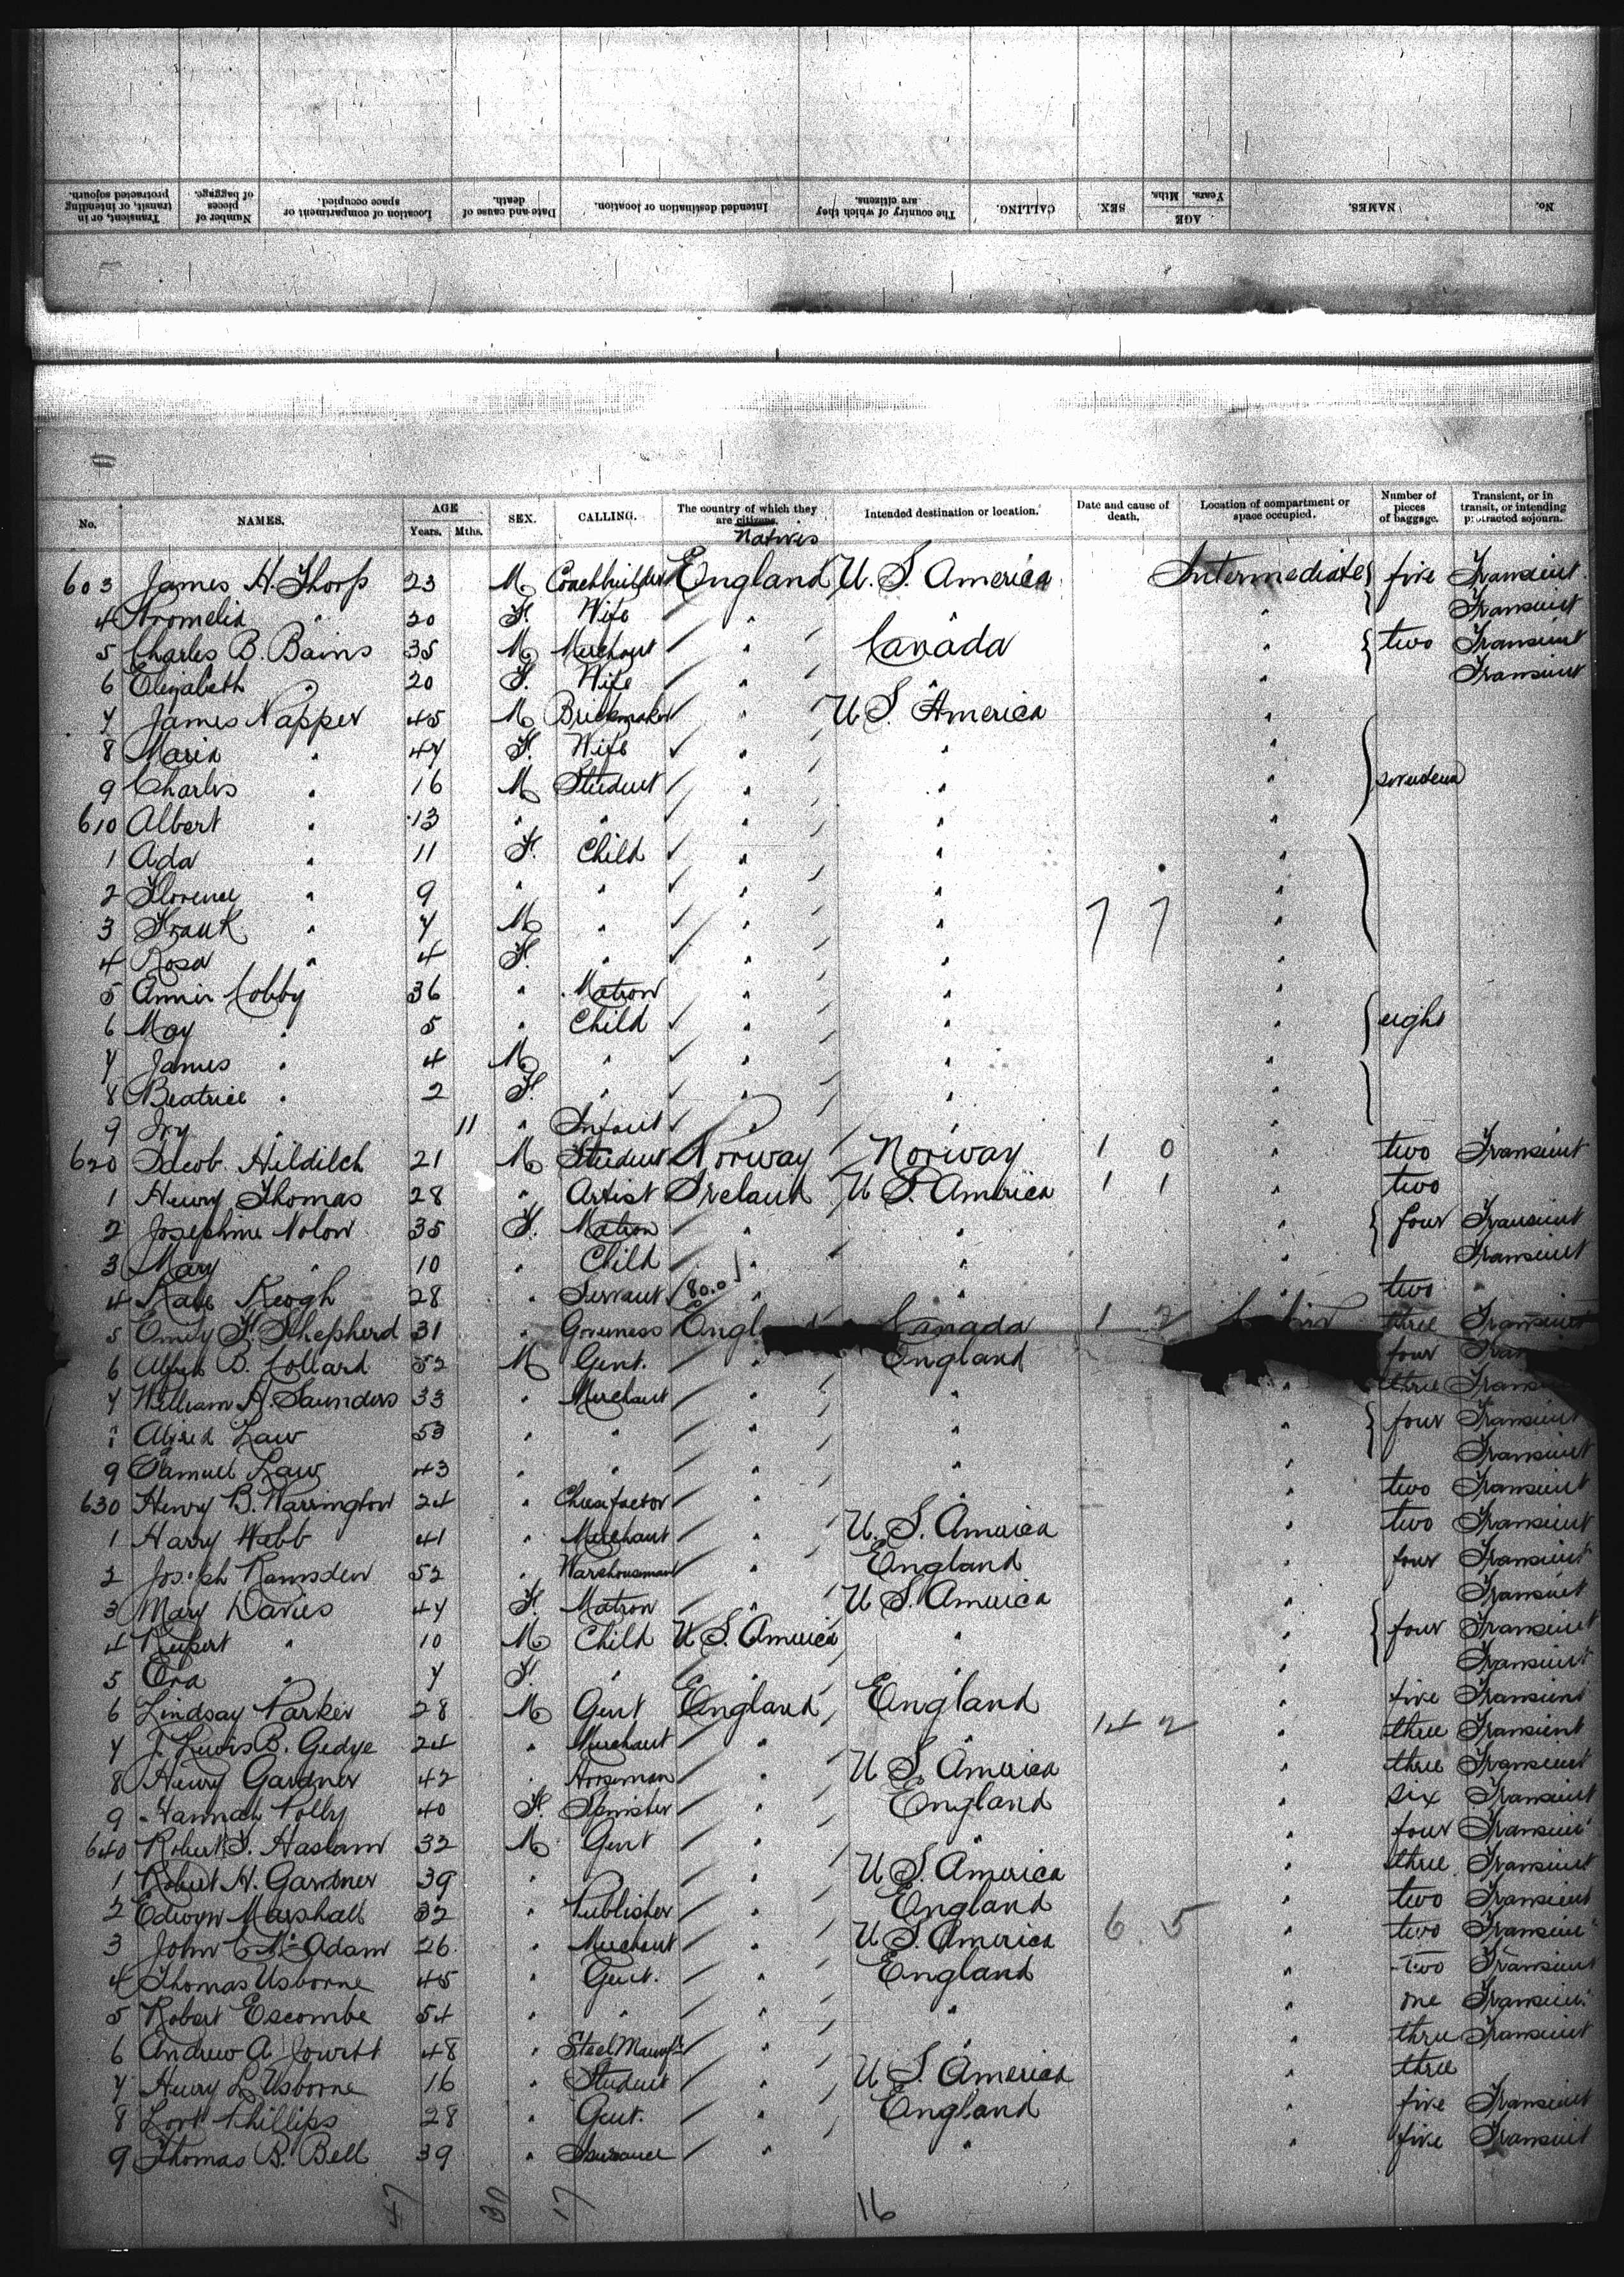 No. NAMES. AGE Years. Mths. SEX. CALLING. The country of which they are citizens. Intended destination or location. Date and cause of death. Location of compartment or space occupied. Number of pieces of baggage. Transient, or in transit, or intending protracted sojourn.
No. NAMES. AGE Years. Mths. SEX. CALLING. The country of which they are citizens. Natives Intended destination or location. Date and cause of death. Location of compartment or space occupied. Number of pieces of baggage. Transient, or in transit, or intending protracted sojourn.
603 James H. 23 M Coachbuilder England U. S. America Intermediate five Transient
4 20 F. Wife " " " Transient
5 Charles B. Bains 35 M Merchant " Canada " two Transient
6 Elizabeth " 20 F. Wife " " " Transient
7 James Napper 45 M Brickmaker " U S. America "
8 Maria " 47 F. Wife " " "
9 Charles " 16 M Student " " " seventeen
610 Albert " 13 " " " " "
1 Ada " 11 F. Child " " "
2 Florence " 9 " " " " "
3 Frank " 7 M " " " 7 7 "
4 Rosa " 4 F. " " " "
5 Annie Cobby 36 " Matron " " "
6 May " 5 " Child " " " eight
7 James " 4 M " " " "
8 Beatrice " 2 F. " " " "
9 Ivy " 11 " Infant " " "
620 Jacob Hilditch 21 M Student Norway Norway 1 0 " two Transient
1 Henry Thomas 28 " Artist Ireland U S. America 1 1 " two
2 Josephine Nolan 35 F. Matron " " " four Transient
3 Mary " 10 " Child " " " Transient
4 Kate Keogh 28 " Servant (80.0) " " " two "
5 Emily F. Shepherd 31 " Governess Engl Canada 1 2 three Transient
6 Alfred B. Collard 52 M Gent. " England four Tran
7 William H. Saunders 33 " Merchant " " " three Trans
Alfred Law 53 " " " " " four Transient
9 Samuel Law 43 " " " " " Transient
630 Henry B. Warrington 24 " Cheesefactor " " " two Transient
1 Harry Webb 41 " Merchant " U. S. America " two Transient
2 Joseph Ramsden 52 " Warehouseman " England " four Transient
3 Mary Davies 47 F. Matron U S. America " Transient
4 Rupert " 10 M Child U S. America " " four Transient
5 Ora " 7 F. " " " " Transient
6 Lindsay Parker 28 M Gent England England " five Transient
7 J. Lewis B. Gedye 24 " Merchant " " 14 2 " three Transient
8 Henry Gardner 42 " Horseman " U S. America " three Transient
9 Hannah Polly 40 F. Spinster " England " six Transient
640 Robert F. Haslam 32 M Gent " " " four Transient
1 Robert H. Gardner 39 " " " U S. America " three Transient
2 Edwyn Marshall 32 " Publisher " England 6 5 " two Transient
3 John C. McAdam 26 " Merchant " U S. America " two Transient
4 Thomas Usborne 45 " Gent. " England " two Transient
5 Robert Escombe 54 " " " " " one Transient
6 Andrew A. Jowitt 48 " Steel Manufr " " three Transient
7 Henry L. Usborne 16 " Student " U S. America " three
8 Phillips 28 " Gent. " England " five Transient
9 Thomas B. Bell 39 " Insurance " " " five Transient
47 30 17 16